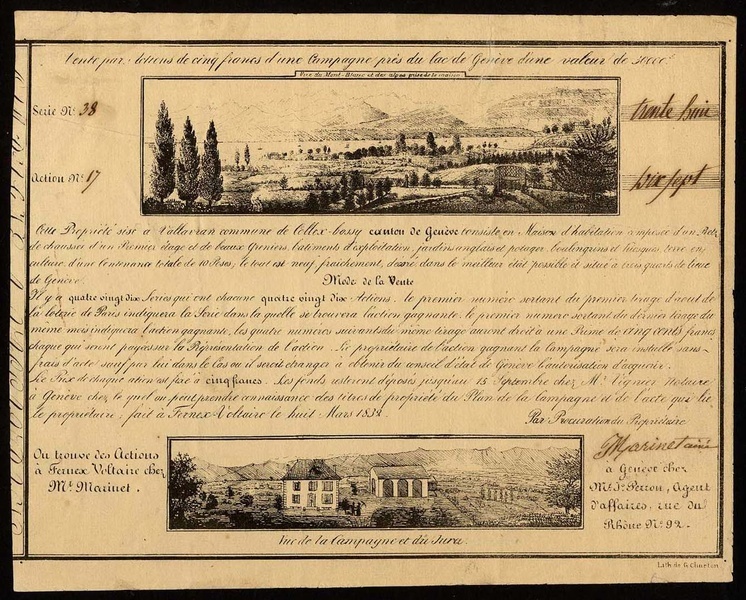 Vente par Actions de cinq francs d'une Campagne près du lac de Genève d'une valeur de 30000f
Vue du Mont-Blanc et des alpes prise de la maison.
Serie No. 38
trente huit
Action No. 17
Dix sept
Cette Propriété sise à Vallavran commune de Collex-bossy canton de Genève consiste en Maison d'habitation composée d'un Rez
de chaussée d'un Premier étage et de beaux Greniers, batiments d'exploitation, jardins anglais et potager, boulengrins et bosquets, terre en
culture d'une contenance totale de 10 Poses; le tout est neuf, fraichement, dans le meilleur état possible et situé à trois quarts de lieue
de Genève.
Mode de la Vente
Il y a quatre vingt dix Series qui ont chacune quatre vingt dix Actions. le premier numéro sortant du premier tirage d'aout de
la loterie de Paris indiquera la Serie dans la quelle se trouvera l'action gagnante. le premier numéro sortant du dernier tirage du
même mois indiquera l'action gagnante, les quatre numéros suivants du même tirage auront droit à une Prime de cinq cents francs
chaque qui seront payés sur la Réprésentation de l'action. Le propriétaire de l'action gagnant la Campagne sera installé sans
frais d'acte sauf par lui dans le Cas ou il seroit étranger à obtenir du conseil d'état de Genève l'autorisation d'acquérir.
Le Prix de chaque action est fixé à cinq francs. Les fonds resteront déposés jusqu'au 15 Septembre chez Mr. Vignier Notaire
à Genève chez le quel on peut prendre connaissance des titres de propriété du Plan de la Campagne et de l'acte qui lie
le propriétaire; fait à Fernex-Voltaire le huit Mars 1832.
Par Procuration du Propriétaire
On trouve des Actions
à Fernex Voltaire chez
Mr. Marinet.
Marinet ainé
à Genève chez
Mr. Js. Perron, Agent
d'affaires, rue du
Rhône No. 92.
Vue de la Campagne et du Jura.
Lith de G. Charton